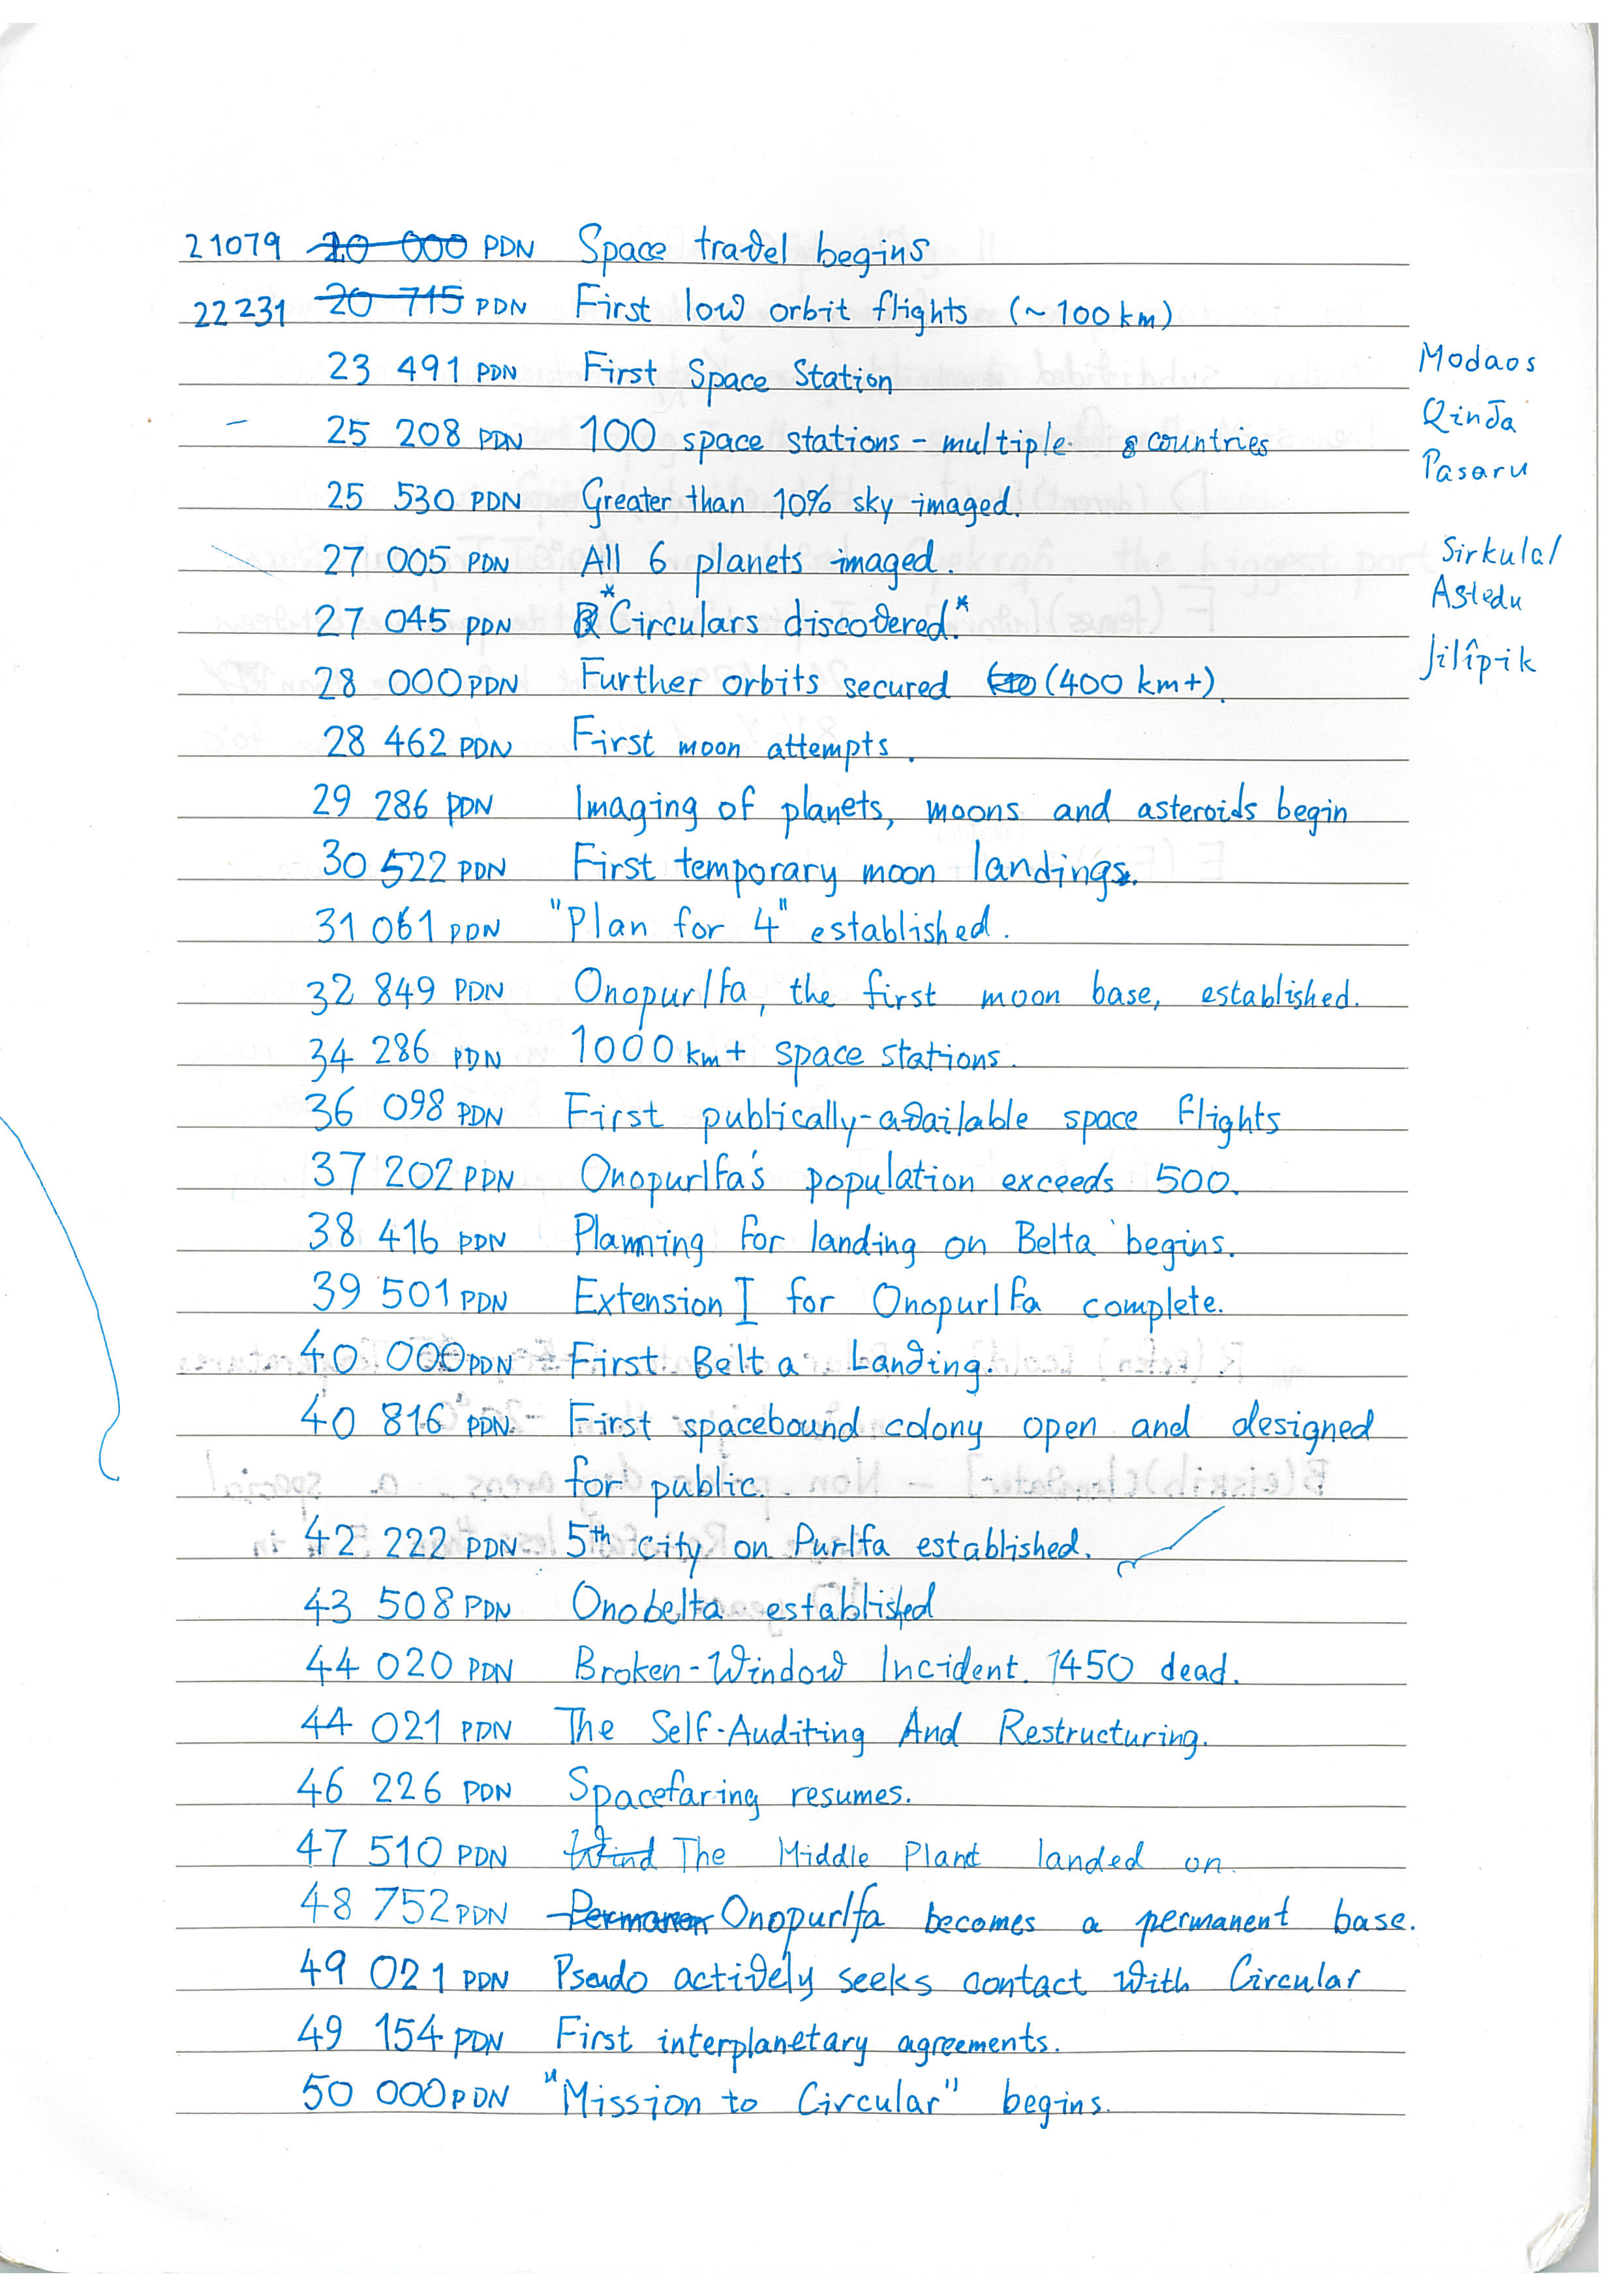 21079 20 000 PDN Space travel begins
22231 20 715 PDN First low orbit flights (~100km)
23 491 PDN First Space Station
Modaos
25 208 PDN 100 space stations - multiple countries
Qinja
Pasaru
25 530 PDN Greater than 10% sky imaged.
27 005 PDN All 6 planets imaged.
Sirkulal
Astedu
27 045 PDN *Circulars discovered.*
Jilîpik
28 000 PDN Further orbits secured (400 km+).
28 462 PDN First moon attempts.
29 286 PDN Imaging of planets, moons and asteroids begin
30 522 PDN First temporary moon landings.
31 061 PDN "Plan for 4" established.
32 849 PDN Onopurlfa, the first moon base, established.
34 286 PDN 1000 km+ space stations.
36 098 PDN First publically-available space flights
37 202 PDN Onopurlfa's population exceeds 500.
38 416 PDN Planning for landing on Belta begins.
39 501 PDN Extension I for Onopurlfa complete.
40 000 PDN First Belta Landing.
40 816 PDN First spacebound colony open and designed
for public.
42 222 PDN 5th city on Purlfa established.
43 508 PDN Onobelta established
44 020 PDN Broken-Window Incident. 1450 dead.
44 021 PDN The Self-Auditing And Restructuring.
46 226 PDN Spacefaring resumes.
47 510 PDN The Middle Planet landed on.
48 752 PDN Permanen Onopurlfa becomes a permanent base.
49 021 PDN Pseudo actively seeks contact with Circular
49 154 PDN First interplanetary agreements.
50 000 PDN "Mission to Circular" begins.